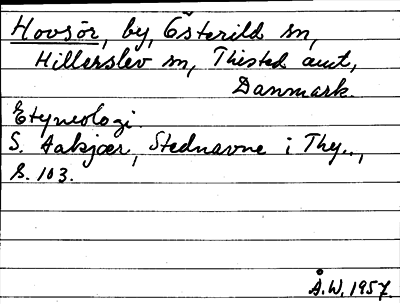 Hovsör, by, Österild sn,
Hillerslev sn, Thisted amt,
Danmark.
Etymologi.
S. Aakjær, Stednavne i Thy..,
s. 103.
Å.W. 1957.